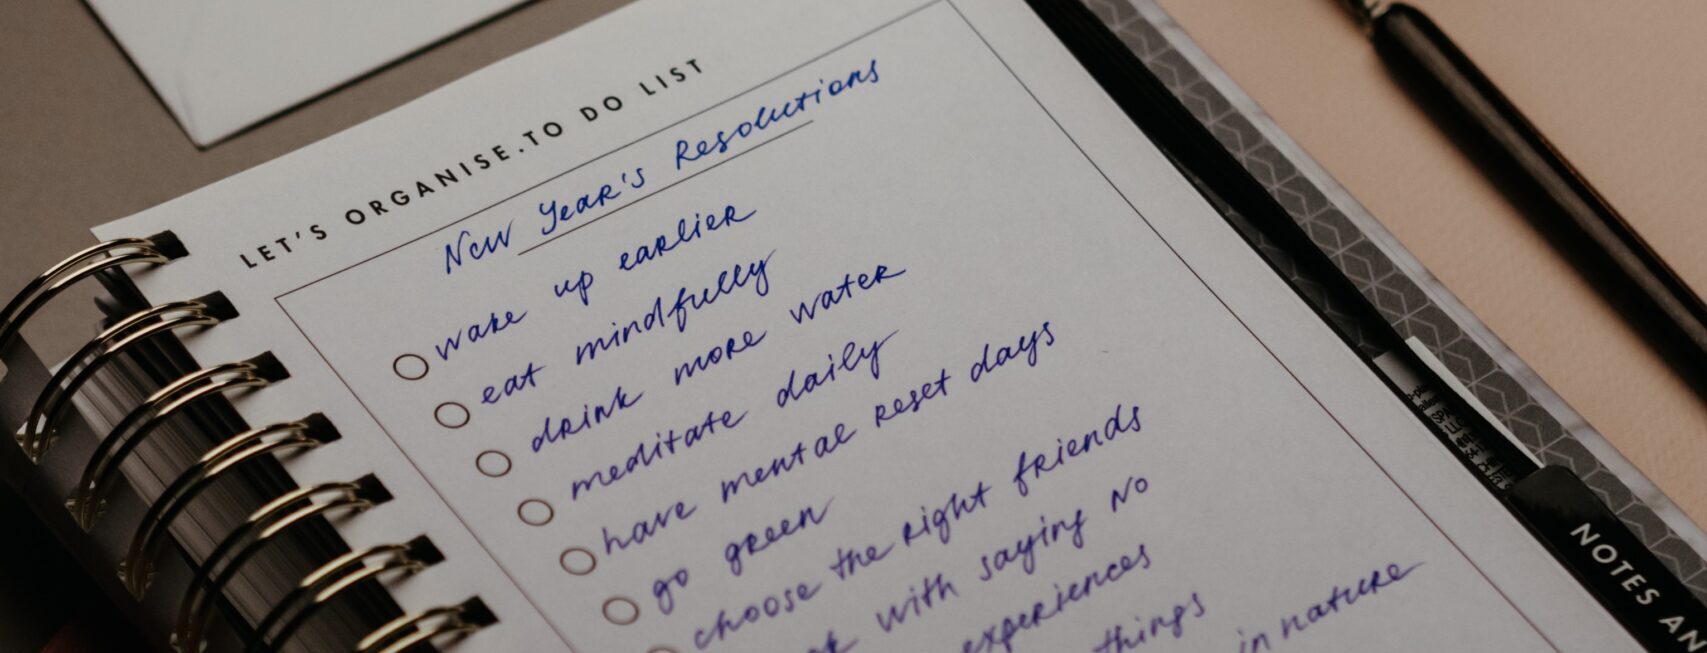 LET'S ORGANISE.TO DO LIST
New Year's Resolutions
wake up earlier
eat mindfully
drink more water
meditate daily
have mental reset days
go green
choose the right friends
with saying NO
experiences
things
in nature
NOTES AN